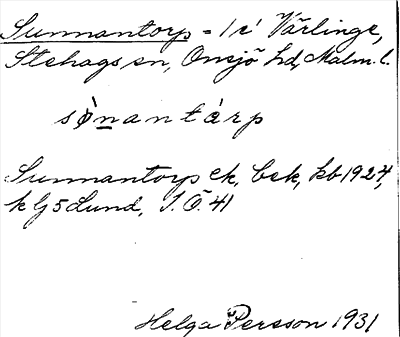 Sunnantorp = 1 i Värlinge,
Stehags sn, Onsjö hd, Malm. l.
sø̀nantàrp
Sunnantorp ek, bek, kb 1924,
k G 5 Lund, I. Ö. 41
Helga Persson 1931